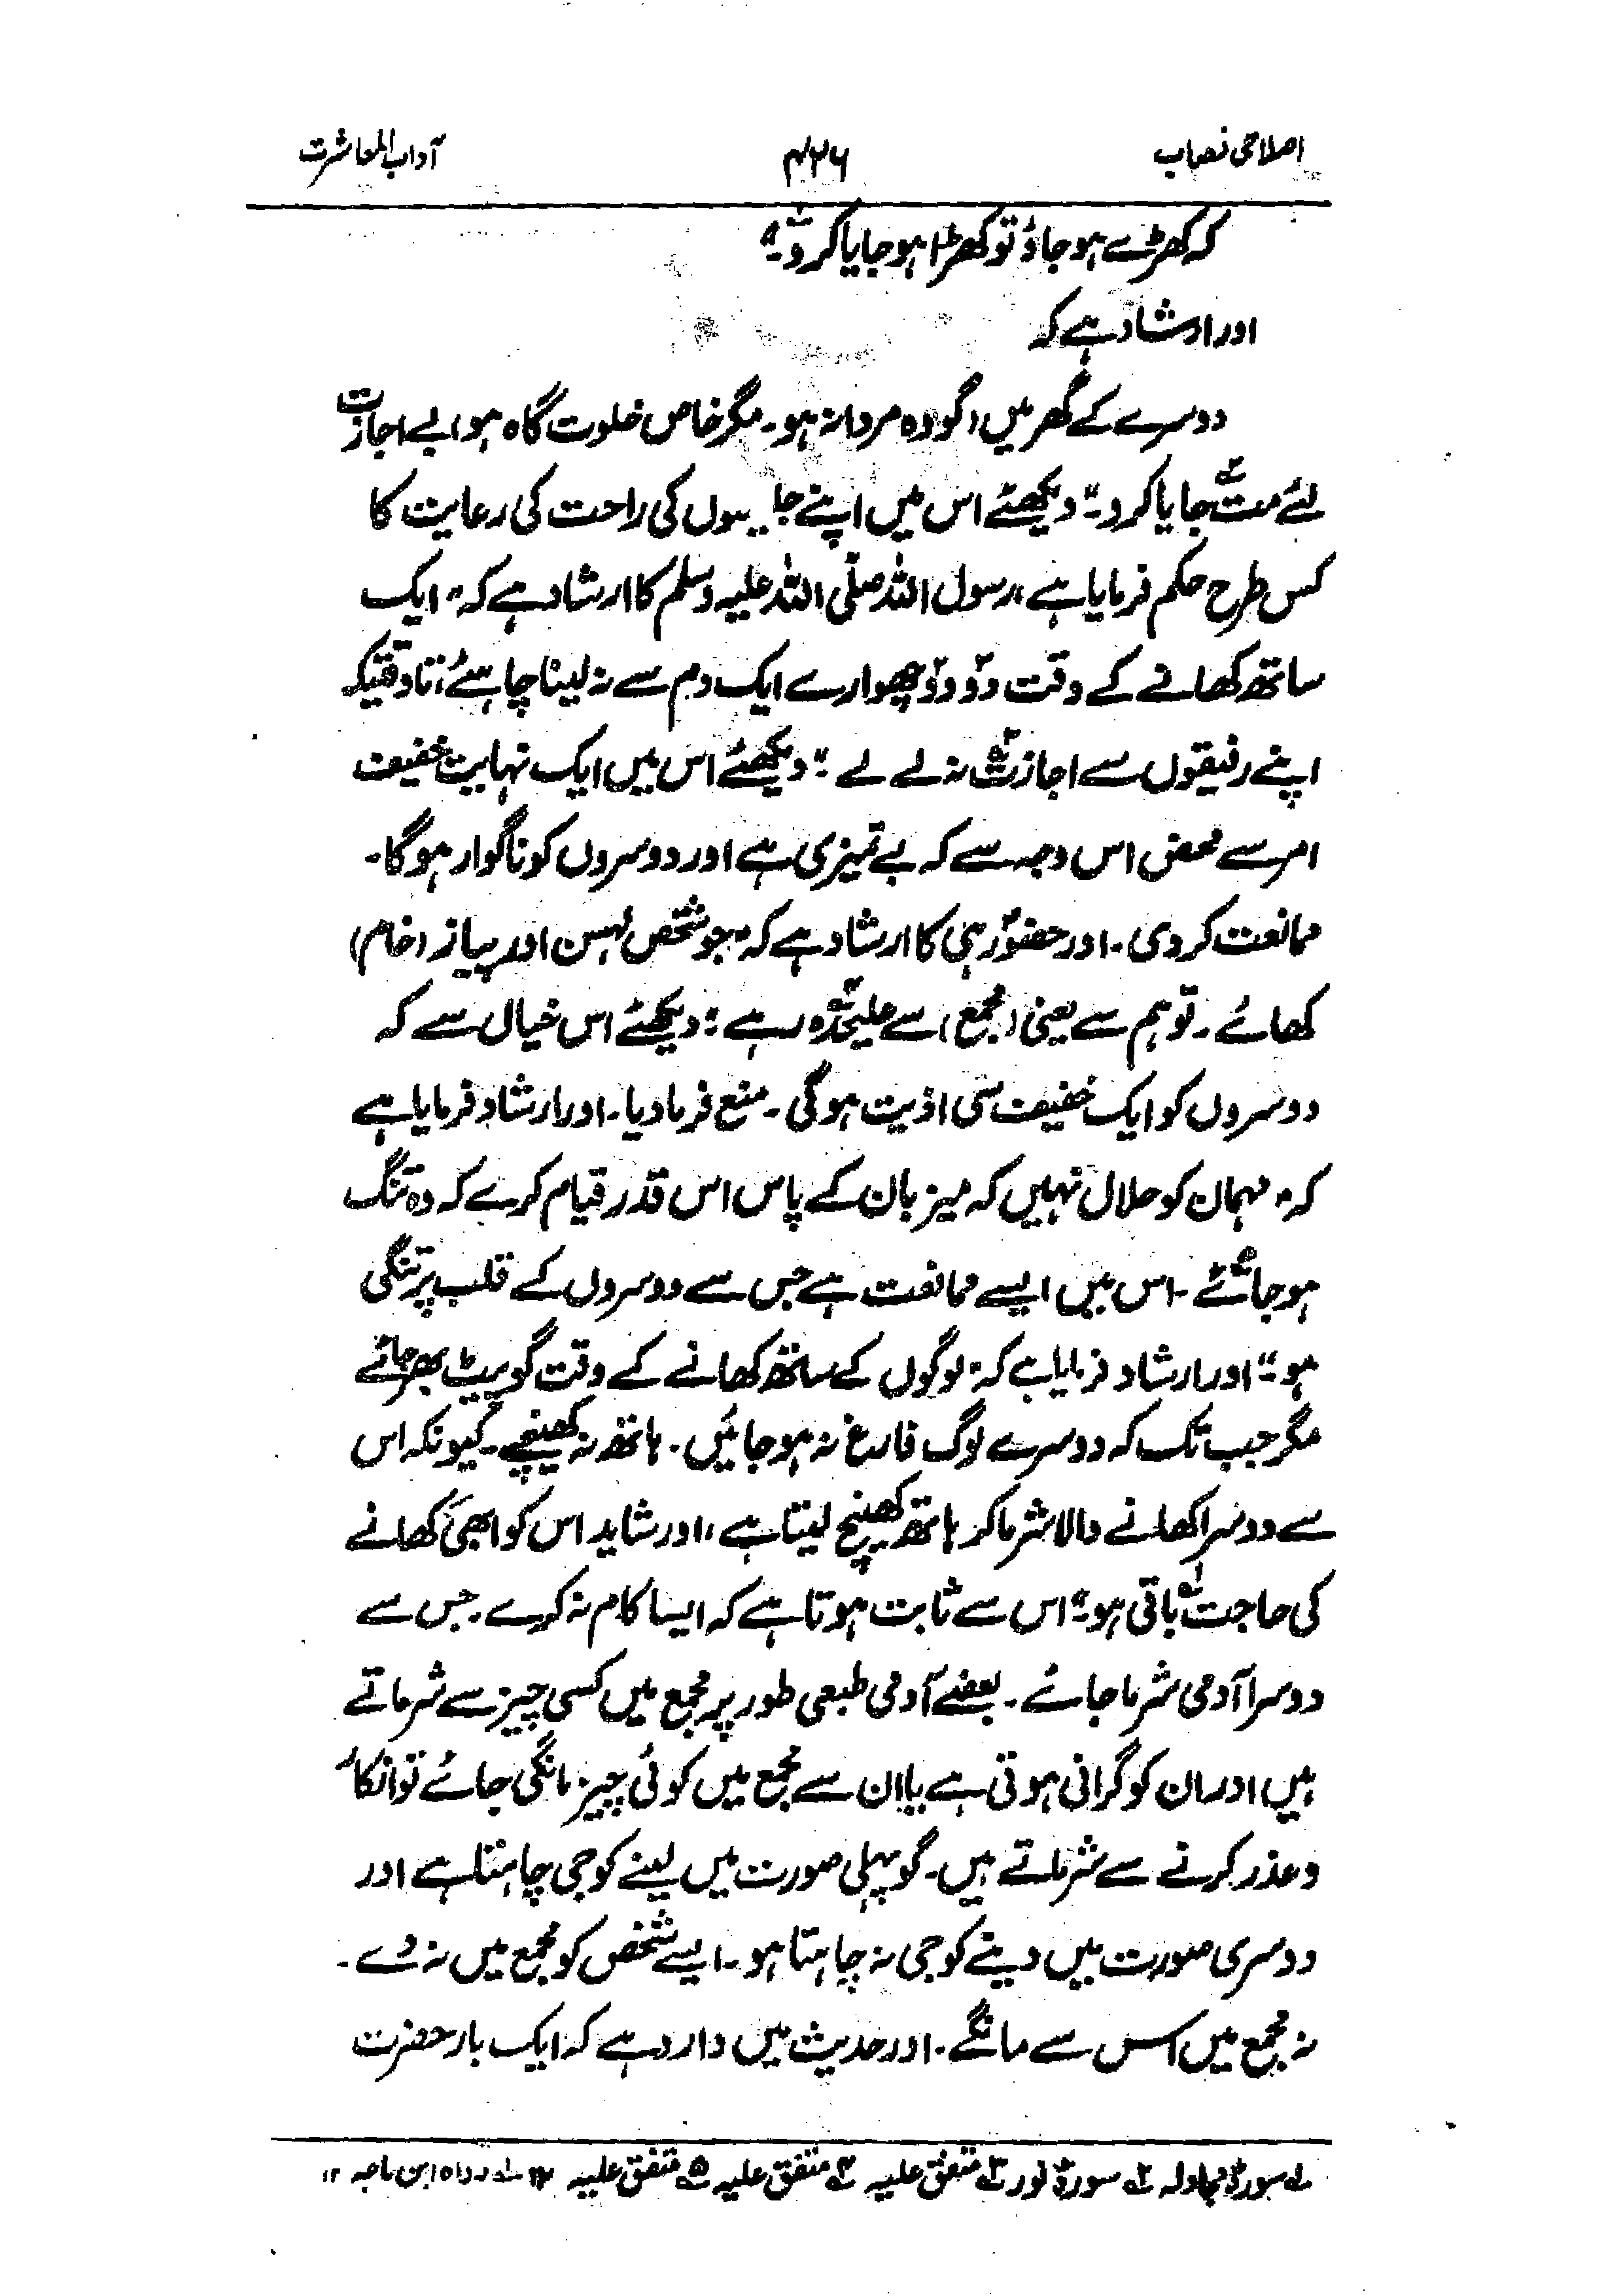 اصلاحی نصاب ۴۲۶ آداب المعاشرت
کہ کھڑے ہوجاؤ تو کھڑا ہو جایا کرو۔"
اور ارشاد ہے کہ
دوسرے کے گھر میں (گو وہ مردانہ ہو۔ مگر خاص خلوت گاہ ہو) بے اجازت
لئے مت جایا کرو۔" دیکھئے اس میں اپنے کی راحت کی رعایت کا
کس طرح حکم فرمایا ہے، رسول اللہ صلی اللہ علیہ وسلم کا ارشاد ہے کہ "ایک
ساتھ کھانے کے وقت دو دو چھوارے ایک دم سے نہ لینا چاہئے، تا وقتیکہ
اپنے رفیقوں سے اجازت نہ لے لے۔" دیکھئے اس میں ایک نہایت خفیف
امر سے محض اس وجہ سے کہ بے تمیزی ہے اور دوسروں کو ناگوار ہوگا۔
ممانعت کردی۔ اور حضورؐ ہی کا ارشاد ہے کہ "جو شخص لہسن اور پیاز (خام)
کھائے۔ تو ہم سے یعنی (مجمع) سے علیحدہ رہے۔" دیکھئے اس خیال سے کہ
دوسروں کو ایک خفیف سی اذیت ہوگی۔ منع فرمادیا۔ اور ارشاد فرمایا ہے
کہ "مہمان کو حلال نہیں کہ میزبان کے پاس اس قدر قیام کرے کہ وہ تنگ
ہو جائے۔ اس میں ایسے ممانعت ہے جس سے دوسروں کے قلب پر تنگی
ہو۔" اور ارشاد فرمایا ہے کہ "لوگوں کے ساتھ کھانے کے وقت گو پیٹ بھر جائے
مگر جب تک کہ دوسرے لوگ فارغ نہ ہوجائیں۔ ہاتھ نہ کھینچے۔ کیونکہ اس
سے دوسرا کھانے والا شرما کر ہاتھ کھینچ لیتا ہے، اور شاید اس کو ابھی کھانے
کی حاجت باقی ہو۔" اس سے ثابت ہوتا ہے کہ ایسا کام نہ کرے۔ جس سے
دوسرا آدمی شرما جائے۔ بعضے آدمی طبعی طور پر مجمع میں کسی چیز سے شرماتے
ہیں اور ان کو گرانی ہوتی ہے یا ان سے مجمع میں کوئی چیز مانگی جائے تو انکار
و عذر کرنے سے شرماتے ہیں۔ گو پہلی صورت میں لینے کو جی چاہتا ہے اور
دوسری صورت میں دینے کو جی نہ چاہتا ہو۔ ایسے شخص کو مجمع میں نہ دے۔
نہ مجمع میں اس سے مانگے۔ اور حدیث میں وارد ہے کہ ایک بار حضرت
۱ سورۂ مجادلہ ۲ سورۂ نور ۳ متفق علیہ ۴ متفق علیہ ۵ متفق علیہ ۱۲ ۶ رواہ ابن ماجہ ۱۲